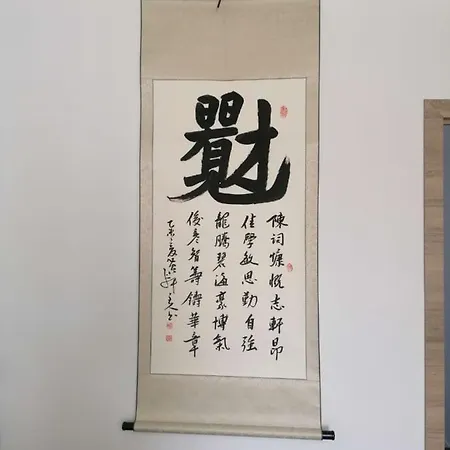 陳詞慷慨志軒昂
佳學敏思勤自強
龍騰碧海豪博氣
俊彥智籌鑄華章
乙未夏